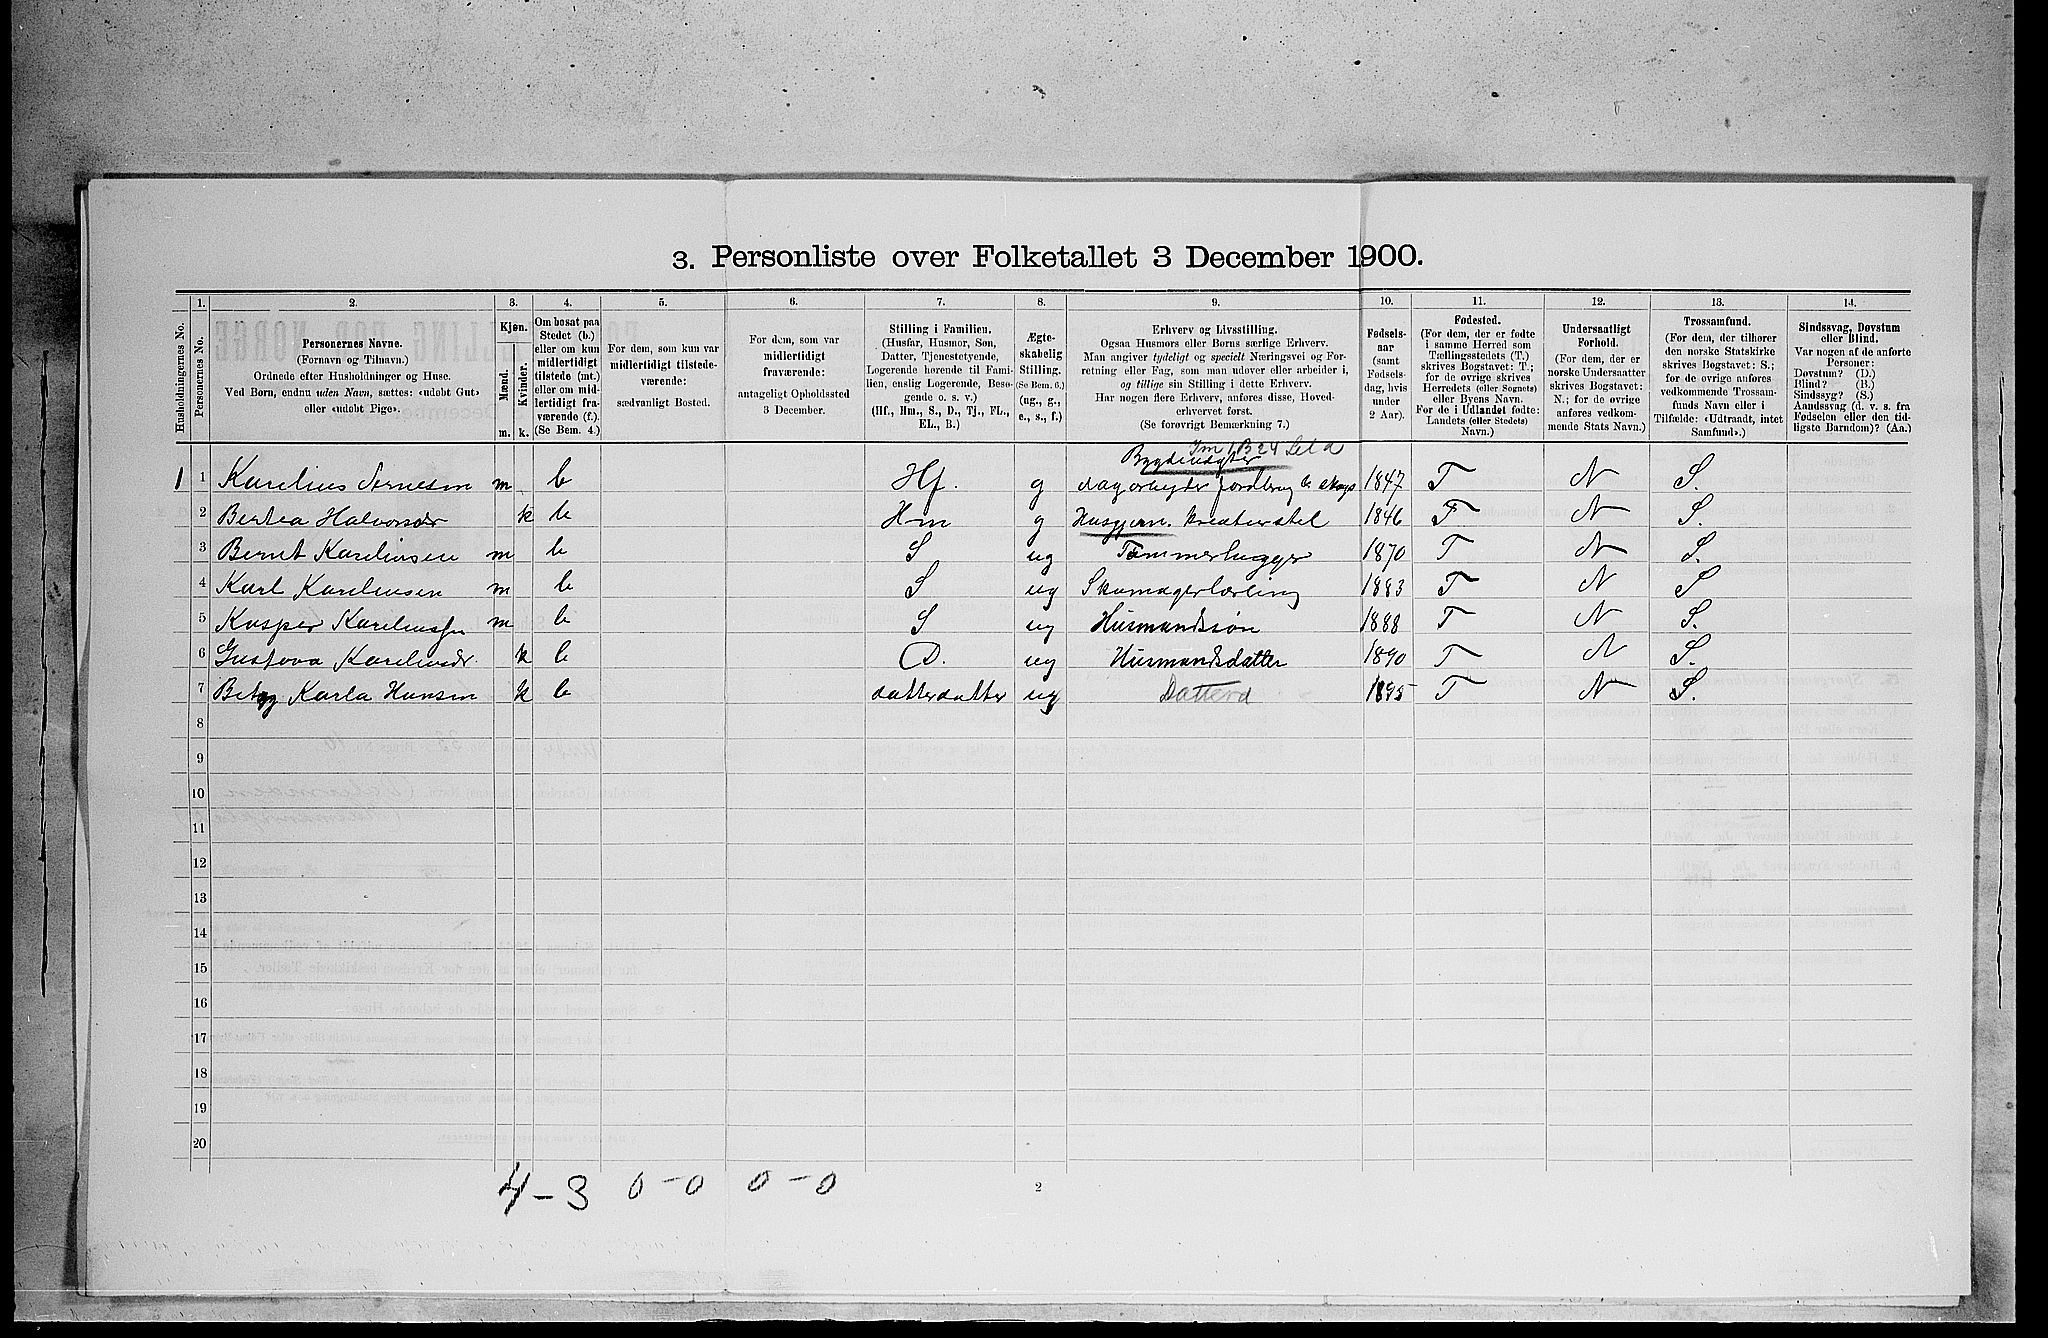 3. Personliste over Folketallet 3 December 1900.
1. 2. 3. 4. 5. 6. 7. 8. 9. 10. 11. 12. 13. 14.
Husholdningernes No.
Personernes No.
Personernes Navne.
(Fornavn og Tilnavn.)
Ordnede efter Husholdninger og Huse.
Ved Børn, endnu uden Navn, sættes: «udøbt Gut»
eller «udøbt Pige».
Kjøn.
Mænd.
Kvinder.
m. k.
Om bosat paa
Stedet (b.)
eller om kun
midlertidigt
tilstede (mt.)
eller om mid-
lertidigt fra-
værende (f.).
(Se Bem. 4.)
For dem, som kun var
midlertidigt tilstede-
værende:
sædvanligt Bosted.
For dem, som var
midlertidigt
fraværende:
antageligt Opholdssted
3 December.
Stilling i Familien.
(Husfar, Husmor, Søn,
Datter, Tjenestetyende,
Logerende hørende til Fami-
lien, enslig Logerende, Besø-
gende o. s. v.)
(Hf., Hm., S., D., Tj., FL.,
EL., B.)
Ægte-
skabelig
Stilling.
(Se Bem. 6.)
(ug., g.,
e., s., f.)
Erhverv og Livsstilling.
Ogsaa Husmors eller Børns særlige Erhverv.
Man angiver tydeligt og specielt Næringsvei og For-
retning eller Fag, som man udøver eller arbeider i,
og tillige sin Stilling i dette Erhverv.
Har nogen flere Erhverv, anføres disse, Hoved-
erhvervet først.
(Se forøvrigt Bemærkning 7.)
Fødsels-
aar
(samt
Fødsels-
dag, hvis
under
2 Aar).
Fødested.
(For dem, der er fødte
i samme Herred som
Tællingsstedets (T.)
skrives Bogstavet: T.;
for de øvrige skrives
Herredets (eller Sognets)
eller Byens Navn.
For de i Udlandet fødte:
Landets (eller Stedets)
Navn.)
Undersaatligt
Forhold.
(For dem, der er
norske Undersaatter
skrives Bogstavet:
N.; for de øvrige
anføres vedkom-
mende Stats Navn.)
Trossamfund.
(For dem, der tilhører
den norske Statskirke
skrives Bogstavet: S.;
for de øvrige anføres
vedkommende Trossam-
funds Navn eller i
Tilfælde: «Udtraadt, intet
Samfund».)
Sindssvag, Døvstum
eller Blind.
Var nogen af de anførte
Personer:
Døvstum? (D.)
Blind? (B.)
Sindssyg? (S.)
Aandssvag (d. v. s. fra
Fødselen eller den tid-
ligste Barndom)? (Aa.)
1 1 Karelius Arnesen m b Hf. g dagarbeyder jordbrug & skogs 1847 T N S.
2 Bertea Halvorsdr k b Hm g Husgjern. kreaturstel 1846 T N S.
3 Bernt Kareliusen m b S ug Tømmerhugger 1870 T N S.
4 Karl Kareliusen m b S ug Skomagerlærling 1883 T N S
5 Kasper Kareliussen m b S ug Husmandssøn 1888 T N S.
6 Gustava Kareliusdr. k b D. ug Husmandsdatter 1890 T N S.
7 Betzy Karla Hansen k b datterdatter ug Datterd 1895 T N S.
8
9
10
11
12
13
14
15
16
17
18
19
20
4-3 0-0 0-0
2